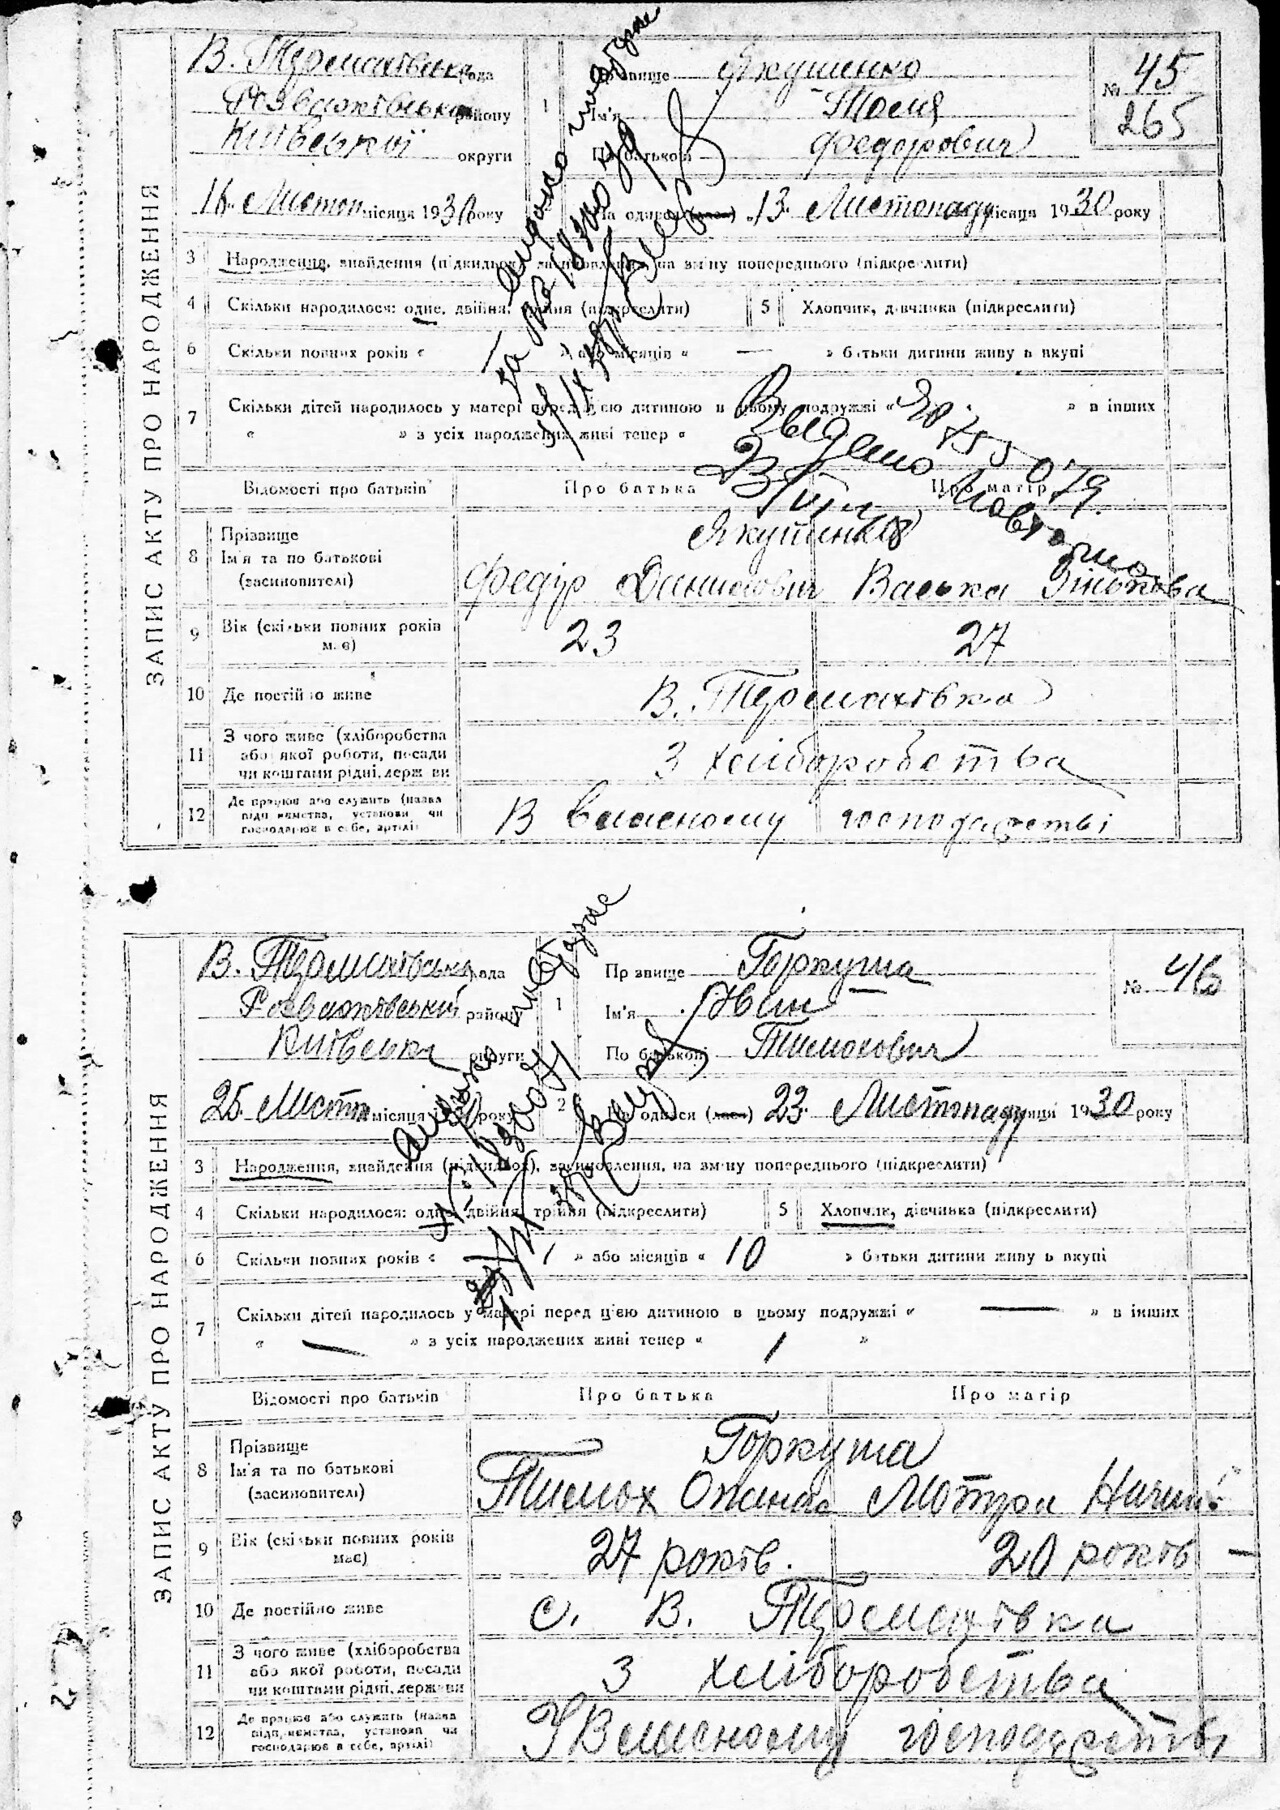 ЗАПИС АКТУ ПРО НАРОДЖЕННЯ
В. Термахівська рада
Розважівська району
Київської округи
1
Прізвище Якушенко
Ім'я Толя
По батькові Федорович
№ 45
265
16 Листоп місяця 1930 року
На одився 13 Листопаду місяця 1930 року
3 Народження, знайдення (підкидьок), засиновлення, на зміну попереднього (підкреслити)
4 Скільки народилося: одне, двійня, трійня (підкреслити)
5 Хлопчик, дівчинка (підкреслити)
6 Скільки повних років « » або місяців « — » батьки дитини живуть вкупі
7 Скільки дітей народилось у матері перед цією дитиною в цьому подружжі « » в інших
« » з усіх народжених живі тепер «
Видано повторно
Відомості про батьків
Про батька
Про матір
8 Прізвище
Ім'я та по батькові
(засиновителі)
Якушенко
Федір Данилович
Васька
9 Вік (скільки повних років має)
23
27
10 Де постійно живе
В. Термахівка
11 З чого живе (хліборобства
або якої роботи, посади
чи коштами рідні, держави
З хліборобства
12 Де працює або служить (назва
підприємства, установи чи
господарює в себе, артілі)
В власному господарстві
ЗАПИС АКТУ ПРО НАРОДЖЕННЯ
В. Термахівська рада
Розважівський району
Київська округи
1
Прізвище Горкуша
Ім'я Іван
По батькові Тимохович
№ 46
25 Листоп місяця 1930 року
2
Народився 23 Листопаду місяця 1930 року
3 Народження, знайдення (підкидьок), засиновлення, на зміну попереднього (підкреслити)
4 Скільки народилося: одне, двійня, трійня (підкреслити)
5 Хлопчик, дівчинка (підкреслити)
6 Скільки повних років « 1 » або місяців « 10 » батьки дитини живуть вкупі
7 Скільки дітей народилось у матері перед цією дитиною в цьому подружжі « — » в інших
« — » з усіх народжених живі тепер « 1 »
Відомості про батьків
Про батька
Про матір
8 Прізвище
Ім'я та по батькові
(засиновителі)
Горкуша
Тимох Опанас
Мотря Ничип
9 Вік (скільки повних років має)
27 років.
20 років —
10 Де постійно живе
с. В. Термахівка
11 З чого живе (хліборобства
або якої роботи, посади
чи коштами рідні, держави
З хліборобства
12 Де працює або служить (назва
підприємства, установи чи
господарює в себе, артілі)
У Власному господарстві